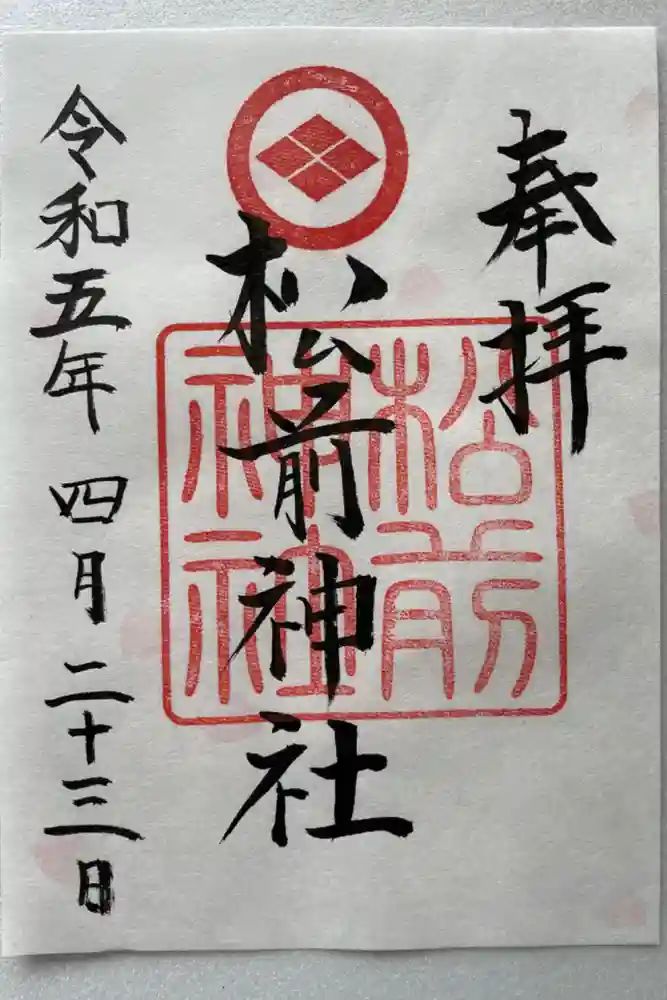 奉拝
松前神社
松前
神社
令和五年四月二十三日